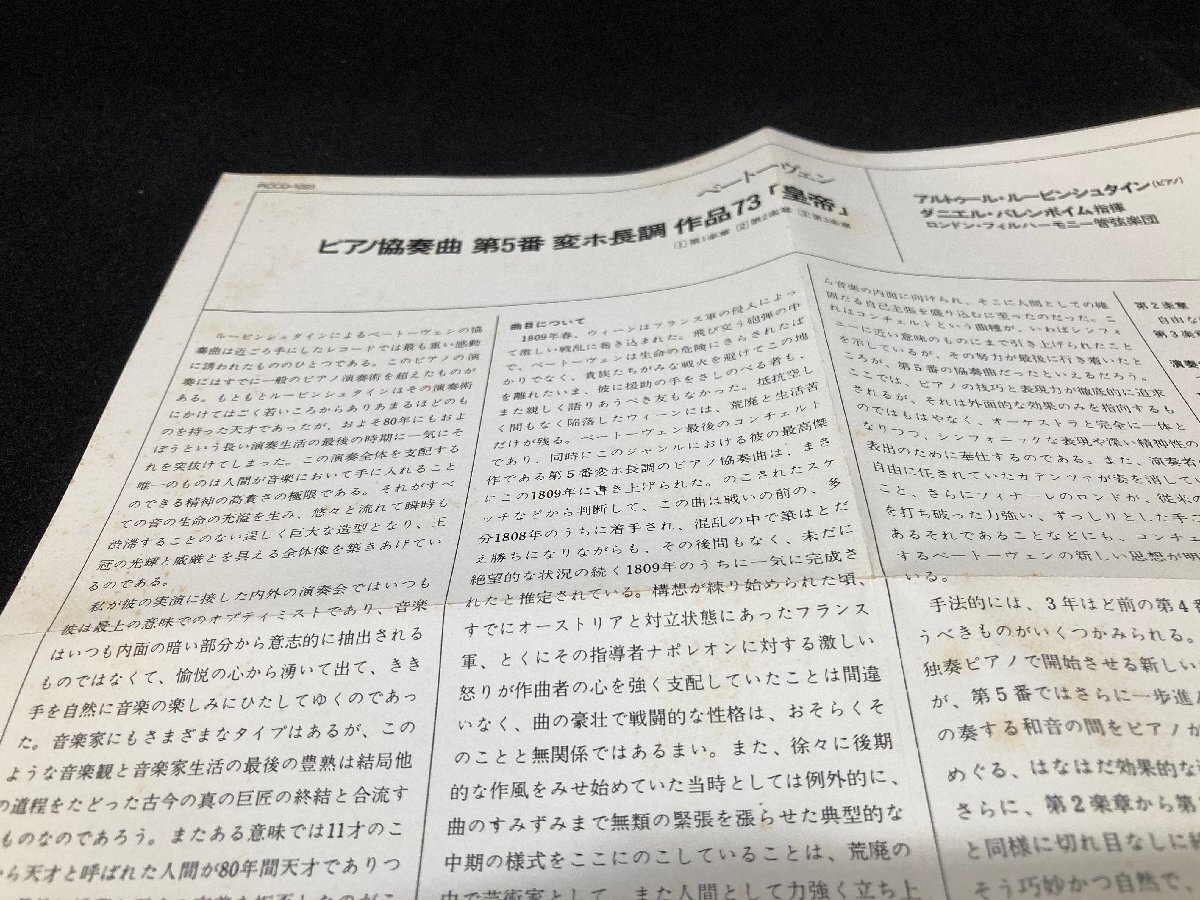 ベートーヴェン
ピアノ協奏曲 第5番 変ホ長調 作品73「皇帝」
①第1楽章 ②第2楽章 ③第3楽章
アルトゥール・ルービンシュタイン(ピアノ)
ダニエル・バレンボイム指揮
ロンドン・フィルハーモニー管弦楽団
ルービンシュタインによるベートーヴェンの協
奏曲は近ごろ手にしたレコードでは最も重い感動
に誘われたもののひとつである。このピアノの演
奏にはすでに一般のピアノ演奏術を超えたものが
ある。もともとルービンシュタインはその演奏術
にかけてはごく若いころからありあまるほどのも
のを持った天才であったが、およそ80年にもおよ
ぼうという長い演奏生活の最後の時期に一気にそ
れを突抜けてしまった。この演奏全体を支配する
唯一のものは人間が音楽において手に入れること
のできる精神の高貴さの極限である。それがすべ
ての音の生命の充溢を生み、悠々と流れて瞬時も
渋滞することのない逞しく巨大な造型となり、王
冠の光輝と威厳とを具える全体像を築きあげてい
るのである。
私が彼の実演に接した内外の演奏会ではいつも
彼は最上の意味でのオプティミストであり、音楽
はいつも内面の暗い部分から意志的に抽出される
ものではなくて、愉悦の心から湧いて出て、きき
手を自然に音楽の楽しみにひたしてゆくのであっ
た。音楽家にもさまざまなタイプはあるが、この
ような音楽観と音楽家生活の最後の豊熟は結局他
の道程をたどった古今の真の巨匠の終結と合流す
ものなのであろう。またある意味では11才のこ
ら天才と呼ばれた人間が80年間天才でありつ
曲目について
1809年春、ウィーンはフランス軍の侵入によっ
て激しい戦乱に巻き込まれた。飛び交う砲弾の中
で、ベートーヴェンは生命の危険にさらされたば
かりでなく、貴族たちがみな戦火を避けてこの地
を離れたいま、彼に援助の手をさしのべる者も、
また親しく語りあうべき友もなかった。抵抗空し
く間もなく陥落したウィーンには、荒廃と生活苦
だけが残る。ベートーヴェン最後のコンチェルト
であり、同時にこのジャンルにおける彼の最高傑
作である第5番変ホ長調のピアノ協奏曲は、まさ
にこの1809年に書き上げられた。のこされたスケ
ッチなどから判断して、この曲は戦いの前の、多
分1808年のうちに着手され、混乱の中で筆はとだ
え勝ちになりながらも、その後間もなく、未だに
絶望的な状況の続く1809年のうちに一気に完成さ
れたと推定されている。構想が練り始められた頃、
すでにオーストリアと対立状態にあったフランス
軍、とくにその指導者ナポレオンに対する激しい
怒りが作曲者の心を強く支配していたことは間違
いなく、曲の豪壮で戦闘的な性格は、おそらくそ
のことと無関係ではあるまい。また、徐々に後期
的な作風をみせ始めていた当時としては例外的に、
曲のすみずみまで無類の緊張を漲らせた典型的な
中期の様式をここにのこしていることは、荒廃の
中で芸術家として、また人間として力強く立ち上
ら音楽の内面に向けられ、そこに人間としての確
固たる自己主張を盛り込むに至ったのだった。こ
れはコンチェルトという曲種が、いわばシンフォ
ニーに近い意味のものにまで引き上げられたこと
を示しているが、その努力が最後に行き着いたと
ころが、第5番の協奏曲だったといえるだろう。
ここでは、ピアノの技巧と表現力が徹底的に追求
されるが、それは外面的な効果のみを指向するも
のではもはやなく、オーケストラと完全に一体と
なりつつ、シンフォニックな表現や深い精神性の
表出のために奉仕するのである。また、演奏者の
自由に任されていたカデンツァが姿を消して
こと、さらにフィナーレのロンドが、従来の
を打ち破った力強い、ずっしりとした手ご
あるそれであることなどにも、コンチェ
するベートーヴェンの新しい思想が明
いる。
手法的には、3年ほど前の第4番
うべきものがいくつかみられる。
独奏ピアノで開始させる新しい
が、第5番ではさらに一歩進ん
の奏する和音の間をピアノが
めぐる、はなはだ効果的な
さらに、第2楽章から第
と同様に切れ目なしに続
そう巧妙かつ自然で、
第2楽章
自由な
第3楽章
演奏